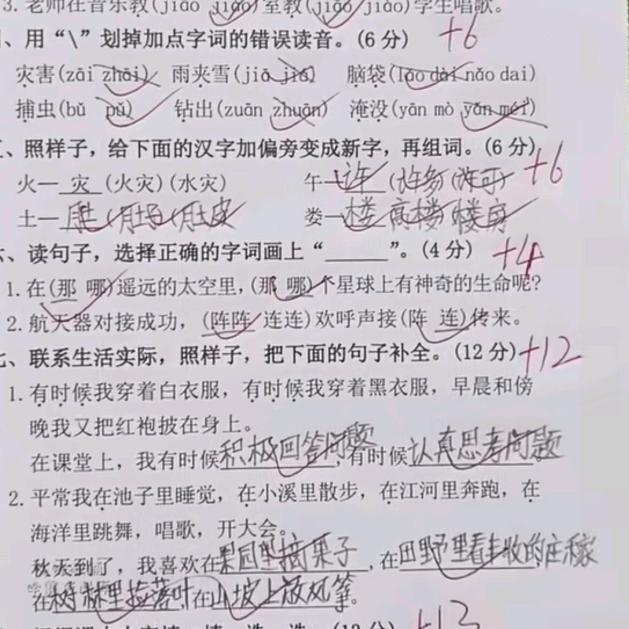 3. 老师在音乐教(jiāo jiào)室教(jiāo jiào)学生唱歌。
、用“\”划掉加点字词的错误读音。(6分) +6
灾害(zāi zhāi) 雨夹雪(jiā jiá) 脑袋(lǎo dài nǎo dai)
捕虫(bǔ pǔ) 钻出(zuān zhuān) 淹没(yān mò yān méi)
、照样子，给下面的汉字加偏旁变成新字，再组词。(6分) +6
火—灾(火灾)(水灾) 午—许(许多)(许可)
土—肚(肚子)(肚皮) 娄—楼(高楼)(楼房)
六、读句子，选择正确的字词画上“______”。(4分) +4
1. 在(那 哪)遥远的太空里，(那 哪)个星球上有神奇的生命呢?
2. 航天器对接成功，(阵阵 连连)欢呼声接(阵 连)传来。
七、联系生活实际，照样子，把下面的句子补全。(12分) +12
1. 有时候我穿着白衣服，有时候我穿着黑衣服，早晨和傍
晚我又把红袍披在身上。
在课堂上，我有时候积极回答问题，有时候认真思考问题。
2. 平常我在池子里睡觉，在小溪里散步，在江河里奔跑，在
海洋里跳舞，唱歌，开大会。
秋天到了，我喜欢在果园里摘果子，在田野里看丰收的庄稼
在树林里捡落叶在山坡上放风筝。
+13